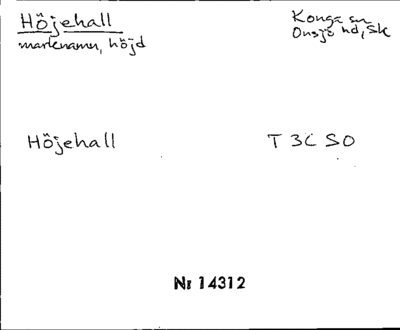 Höjehall
Konga sn
marknamn, höjd
Onsjö hd, Sk
Höjehall
T 3C SO
Nr 14312